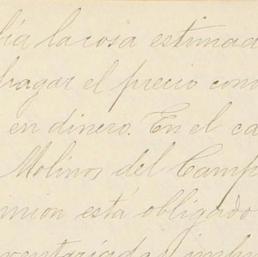 bía la cosa estimad
pagar el precio con
en dinero. En el ca
Molinos del Camp
inion está obligado